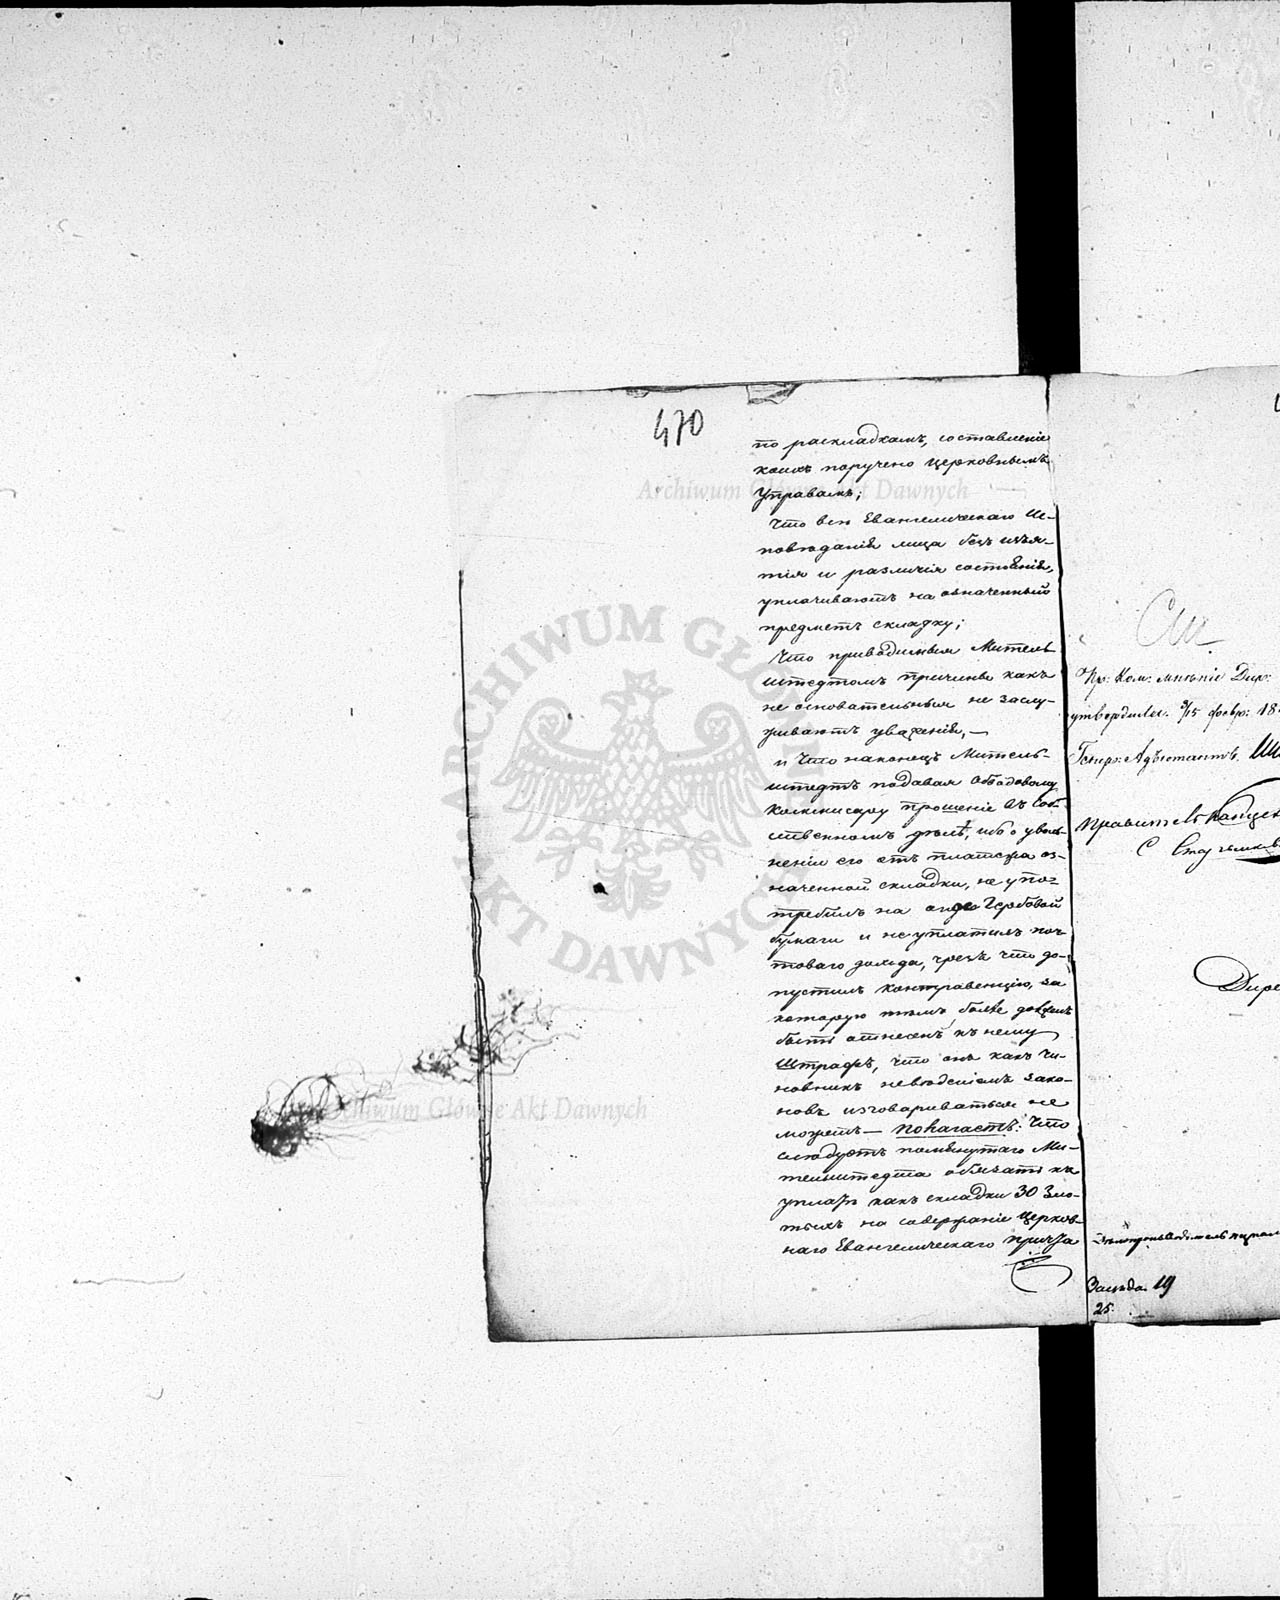 470
по раскладкамъ, составленіе
коихъ поручено церковнымъ
Управамъ;
Что всѣ Евангелическаго Ис-
повѣданія лица безъ изъя-
тія и различія состоянія,
уплачиваютъ на означенный
предметъ складку;
Что приводимыя Митель
штедтомъ причины какъ
не основательныя не заслу-
живаютъ уваженія, —
и Что наконецъ Митель-
штедтъ подавая Обводовому
Коммисару прошеніе въ соб-
ственномъ дѣлѣ, ибо о уволь-
неніи его отъ платежа оз-
наченной складки, не упо-
требилъ на оное Гербовой
бумаги и не уплатилъ поч-
товаго дохода, чрезъ что до-
пустилъ контравенцію, за
которую тѣмъ болѣе долженъ
быть отнесенъ къ нему
Штрафъ, что онъ какъ чи-
новникъ невѣденіемъ зако-
новъ изговариваться не
можетъ — полагаетъ: Что
слѣдуетъ помянутаго Ми-
тельштедта обязать къ
уплатѣ какъ складки 30 Зло-
тыхъ на содержаніе Церков-
наго Евангелическаго причта
Пр: Ком: мнѣніе Дир:
утвердилъ. 3/15 февр: 18
Генер: Адъютантъ. Ши
Правитель Канцел
Дире
Засѣда. 19
25.
Archiwum Główne Akt Dawnych
ARCHIWUM GŁÓWNE AKT DAWNYCH
Archiwum Główne Akt Dawnych